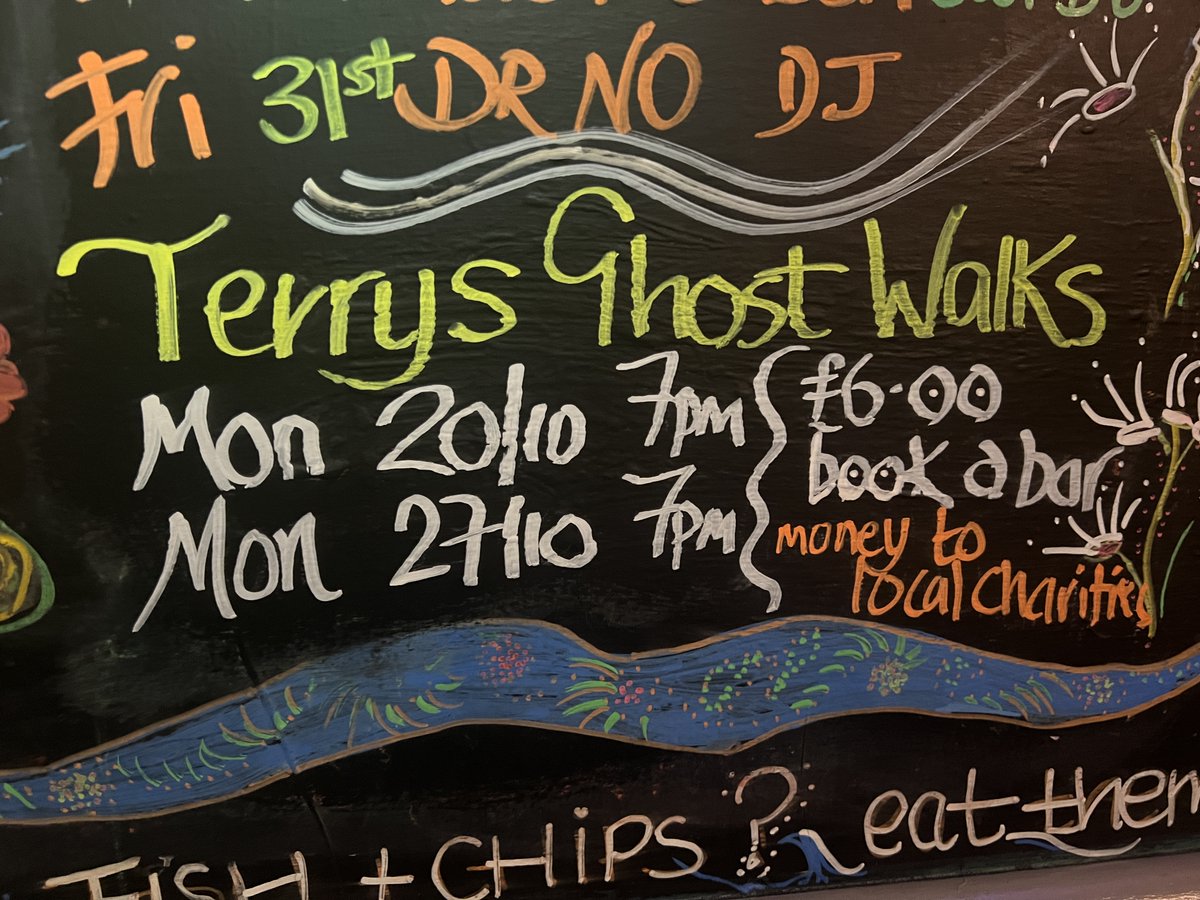 Fri 31st DR NO DJ
Terrys Ghost Walks
Mon 20/10 7pm
Mon 27/10 7pm
£6-00
book a bar
money to
local charities
FisH + CHiPS ? eat them